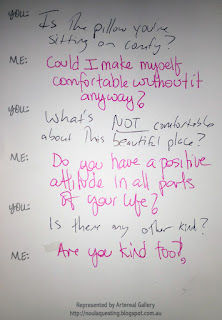 YOU: Is the pillow you're
sitting on comfy?
ME: Could I make myself
comfortable without it
anyway?
YOU: What's NOT comfortable
about this beautiful place?
ME: Do you have a positive
attitude in all parts
of your life?
YOU: Is there any other kind?
ME: Are you kind too?
Represented by Artereal Gallery
http://soulaquesting.blogspot.com.au